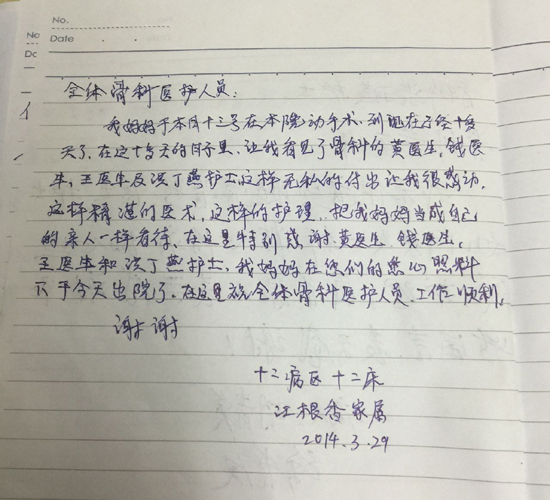 No.
Date
No
全体骨科医护人员：
我妈妈于本月十三号在本院动手术，到现在已经十多
天了，在这十多天的日子里，让我看见了骨科的黄医生，钱医
生，王医生及洪丁燕护士这样无私的付出让我很感动，
这样精湛的医术，这样的护理，把我妈妈当成自己
的亲人一样看待，在这里特别感谢黄医生 钱医生，
王医生和洪丁燕护士，我妈妈在你们的悉心照料
下于今天出院了，在这里祝全体骨科医护人员，工作顺利，
谢谢
十二病区 十二床
江根香家属
2014.3.29